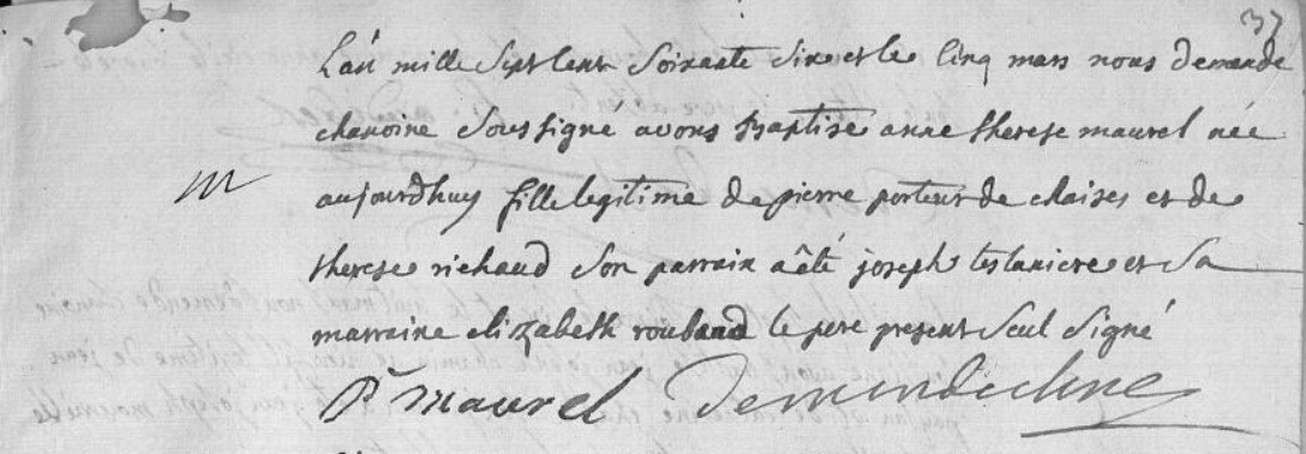 37
L'an mille Sept Cent Soixante Six et le Cinq mars nous demande
chanoine Soussigné avons Baptisé anne therese maurel née
m
aujourdhuy fille legitime de pierre porteur de chaises et de
therese richaud Son parrain a été joseph testaniere et Sa
marraine elizabeth roubaud le pere present Seul Signé
Pre maurel Demande chne